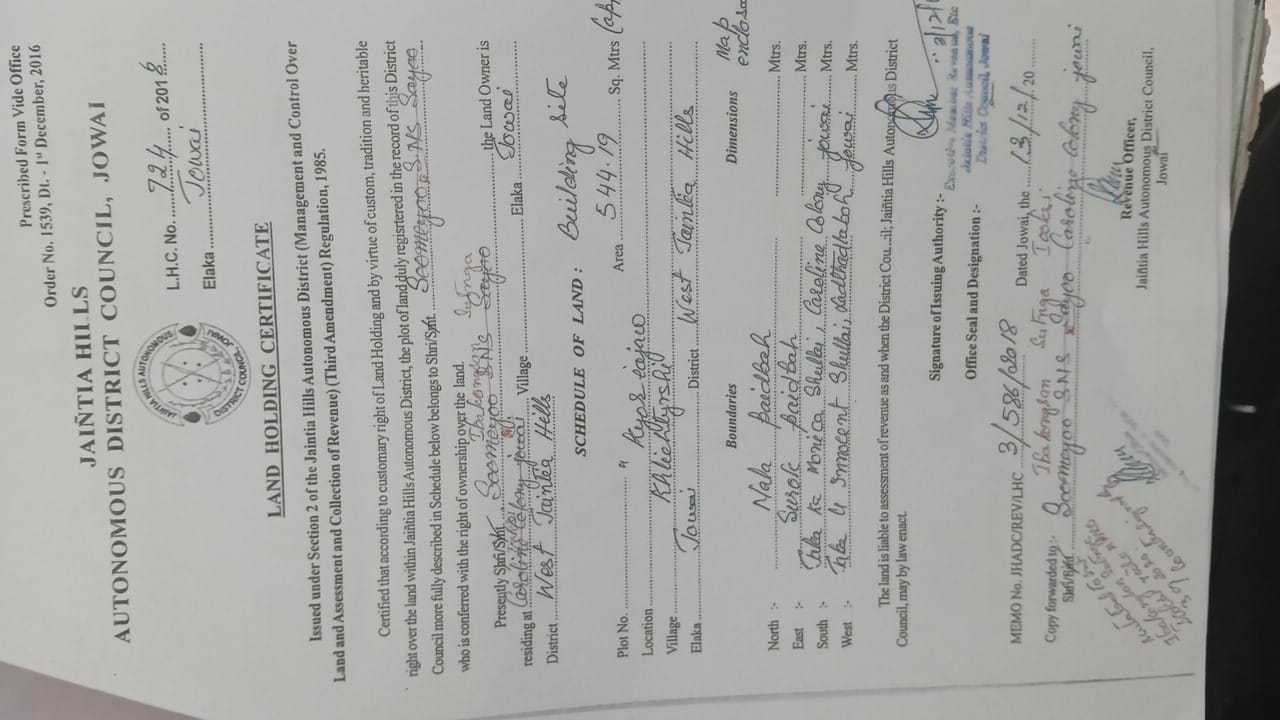 Prescribed Form Vide Office
Order No. 1539, Dt. - 1st December, 2016
JAIÑTIA HILLS
AUTONOMOUS DISTRICT COUNCIL, JOWAI
JAIÑTIA HILLS AUTONOMOUS
DISTRICT COUNCIL
JOWAI
L.H.C. No. 724 of 2018
Elaka Jowai
LAND HOLDING CERTIFICATE
Issued under Section 2 of the Jaintia Hills Autonomous District (Management and Control Over
Land and Assessment and Collection of Revenue) (Third Amendment) Regulation, 1985.
Certified that according to customary right of Land Holding and by virtue of custom, tradition and heritable
right over the land within Jaiñtia Hills Autonomous District, the plot of land duly regisrtered in the record of this District
Council more fully described in Schedule below belongs to Shri/Smt. Soomoyoo SNS Sayoo
who is conferred with the right of ownership over the land.
Sutnga
Presently Shri/Smt. Soomoyoo SNS Sayoo the Land Owner is
residing at Caroline Colony Jowai Village Elaka Jowai
District West Jaintia Hills
SCHEDULE OF LAND : Building Site
Plot No. " Area 544.19 Sq. Mtrs
Location
Village Khliehtyrshi
Elaka Jowai District West Jaintia Hills
Boundaries Dimensions Map
North :- Nala Mtrs.
East :- Surok Mtrs.
South :- Ka Monica Shullai Caroline Colony Jowai Mtrs.
West :- U Innocent Shullai Ladthadlaboh Jowai Mtrs.
The land is liable to assessment of revenue as and when the District Cou...il; Jaintia Hills Autonomous District
Council, may by law enact.
Signature of Issuing Authority :-
Office Seal and Designation :- Executive Member Revenue, Etc
Jaintia Hills Autonomous
District Council, Jowai
MEMO No. JHADC/REV/LHC 3/586/2018 Dated Jowai, the 13/12/20
Copy forwarded to :- Sutnga
Shri/Smt Soomoyoo SNS Sayoo Caroline Colony Jowai
Revenue Officer,
Jaiñtia Hills Autonomous District Council,
Jowai